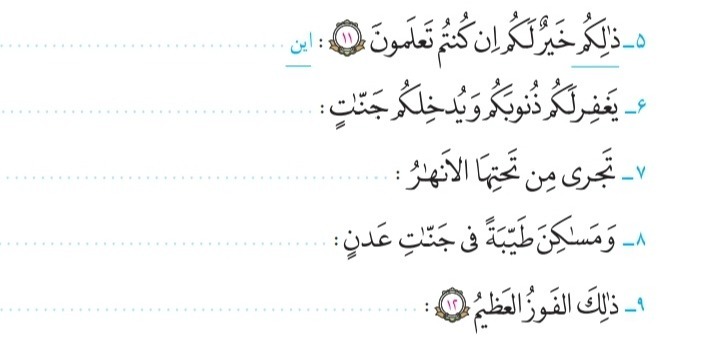 ۵ـ ذٰلِكُم خَيرٌ لَكُم اِن كُنتُم تَعلَمونَ ۱۱ : این ........................
۶ـ يَغفِر لَكُم ذُنوبَكُم وَ يُدخِلكُم جَنّٰتٍ : ........................
۷ـ تَجرى مِن تَحتِهَا الاَنهٰرُ : ........................
۸ـ وَ مَسٰاكِنَ طَيِّبَةً فى جَنّٰتِ عَدنٍ : ........................
۹ـ ذٰلِكَ الفَوزُ العَظيمُ ۱۲ : ........................